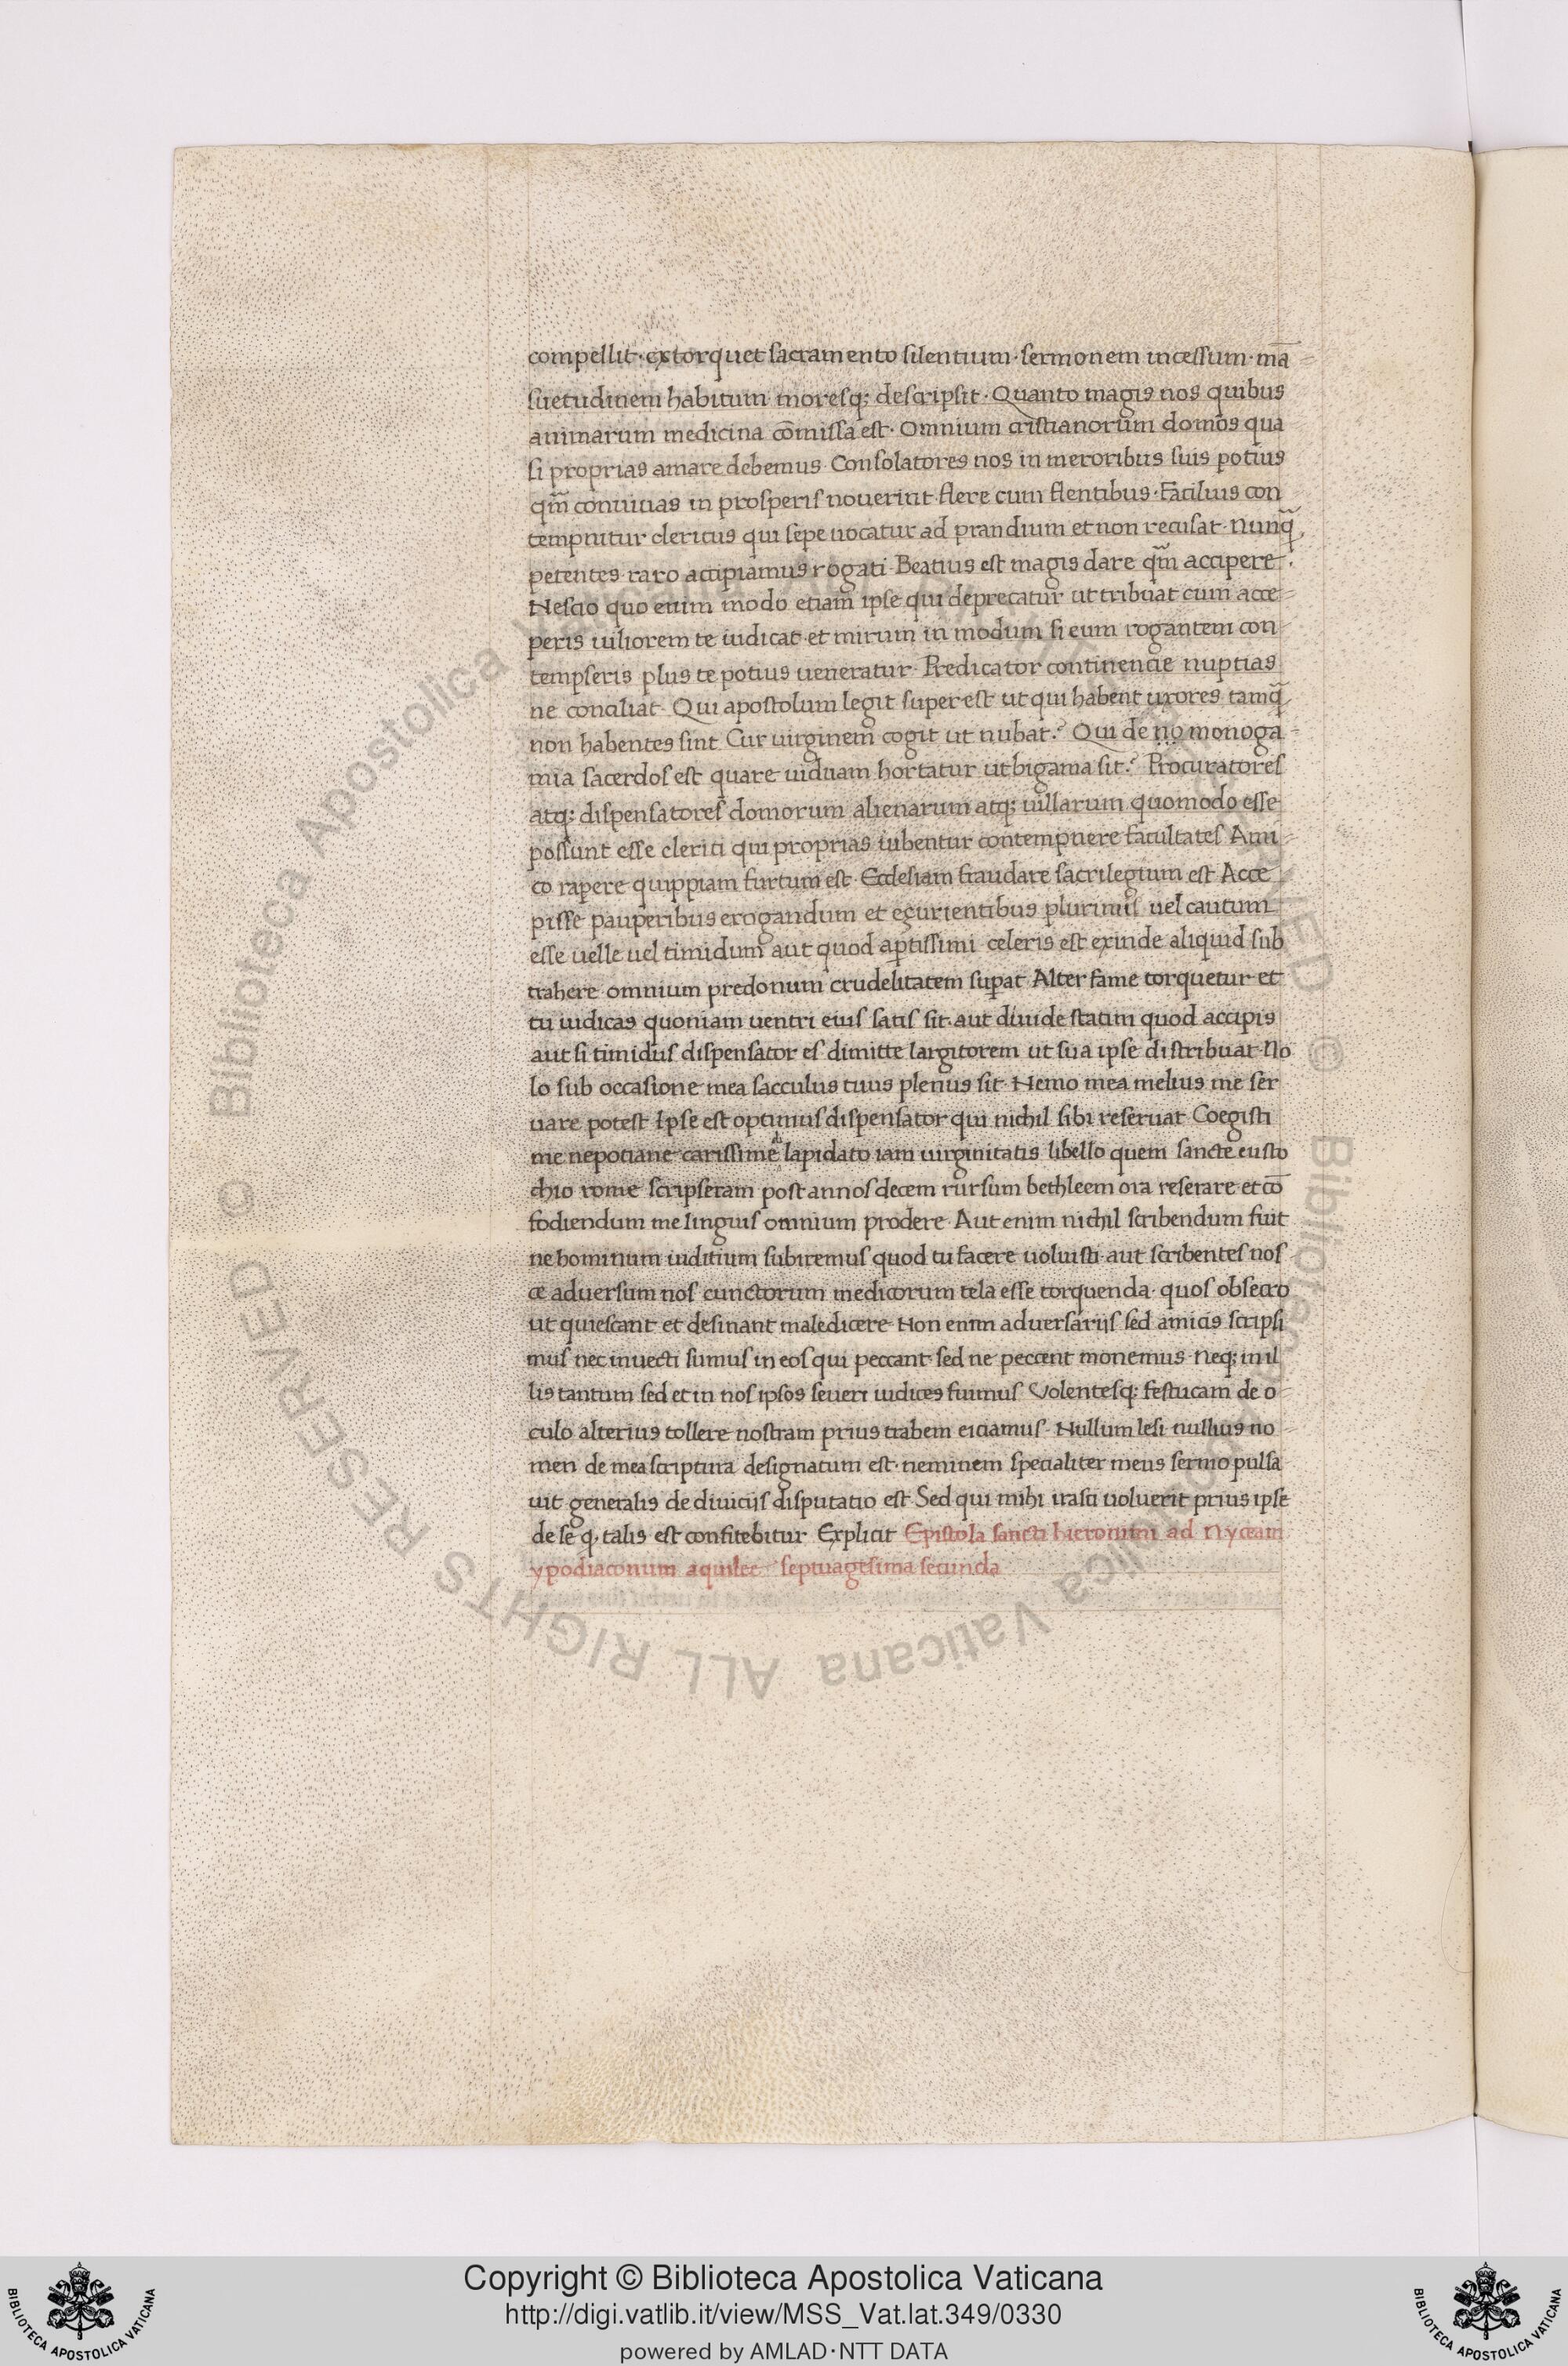 compellit· extorquet sacramento silentium· sermonem incessum· mā
suetudinem habitum moresq; descripsit· Quanto magis nos quibus
animarum medicina cōmissa est· Omnium cristianorum domos qua
si proprias amare debemus· Consolatores nos in meroribus suis potius
qm̄ conuiuas in prosperis nouerint· flere cum flentibus· Facilius con
tempnitur clericus qui sepe uocatur ad prandium et non recusat· Nunq̄
petentes raro accipiamus rogati· Beatius est magis dare qm̄ accipere·
Nescio quo enim modo etiam ipse qui deprecatur ut tribuat cum acce
peris uiliorem te iudicat· et mirum in modum si eum rogantem con
tempseris plus te potius ueneratur· Predicator continencie nuptias
ne conciliat· Qui apostolum legit superest ut qui habent uxores tamq̄
non habentes sint Cur uirginem cogit ut nubat? Qui de no monoga
mia sacerdos est quare uiduam hortatur ut bigama sit? Procuratores
atq; dispensatores domorum alienarum atq; uillarum quomodo esse
possunt esse clerici qui proprias iubentur contempnere facultates Ami
co rapere quippiam furtum est· Ecclesiam fraudare sacrilegium est Acce
pisse pauperibus erogandum et egurientibus plurimis uel cautum
esse uelle uel timidum aut quod aptissimi celeris est exinde aliquid sub
trahere omnium predonum crudelitatem supat Alter fame torquetur et
tu iudicas quoniam uentri eius satis sit· aut diuide statim quod accipis
aut si timidus dispensator es dimitte largitorem ut sua ipse distribuat No
lo sub occasione mea sacculus tuus plenus sit· Nemo mea melius me ser
uare potest Ipse est optimus dispensator qui nichil sibi reseruat Coegisti
me nepotiane carissime lapidato iam uirginitatis libello quem sancte eusto
chio rome scripseram post annos decem rursum bethleem ora reserare et cō
fodiendum me linguis omnium prodere· Aut enim nichil scribendum fuit
ne hominum iuditium subiremus quod tu facere uoluisti· aut scribentes nos
ce aduersum nos cunctorum medicorum tela esse torquenda· quos obsecro
ut quiescant et desinant maledicere Non enim aduersarijs sed amicis scripsi
mus nec inuecti sumus in eos qui peccant· sed ne peccent monemus· Neq; in il
lis tantum sed et in nos ipsos seueri iudices fuimus Volentesq; festucam de o
culo alterius tollere nostram prius trabem eiciamus· Nullum lesi nullius no
men de mea scriptura designatum est· neminem specialiter meus sermo pulsa
uit generalis de diuicijs disputatio est· Sed qui mihi irasci uoluerit prius ipse
de se q, talis est confitebitur Explicit Epistola sancti hieronimi ad Nyceam
ypodiaconum aquilee septuagesima secunda
© Biblioteca Apostolica Vaticana ALL RIGHTS RESERVED
Copyright © Biblioteca Apostolica Vaticana
http://digi.vatlib.it/view/MSS_Vat.lat.349/0330
powered by AMLAD·NTT DATA
BIBLIOTECA APOSTOLICA VATICANA
BIBLIOTECA APOSTOLICA VATICANA